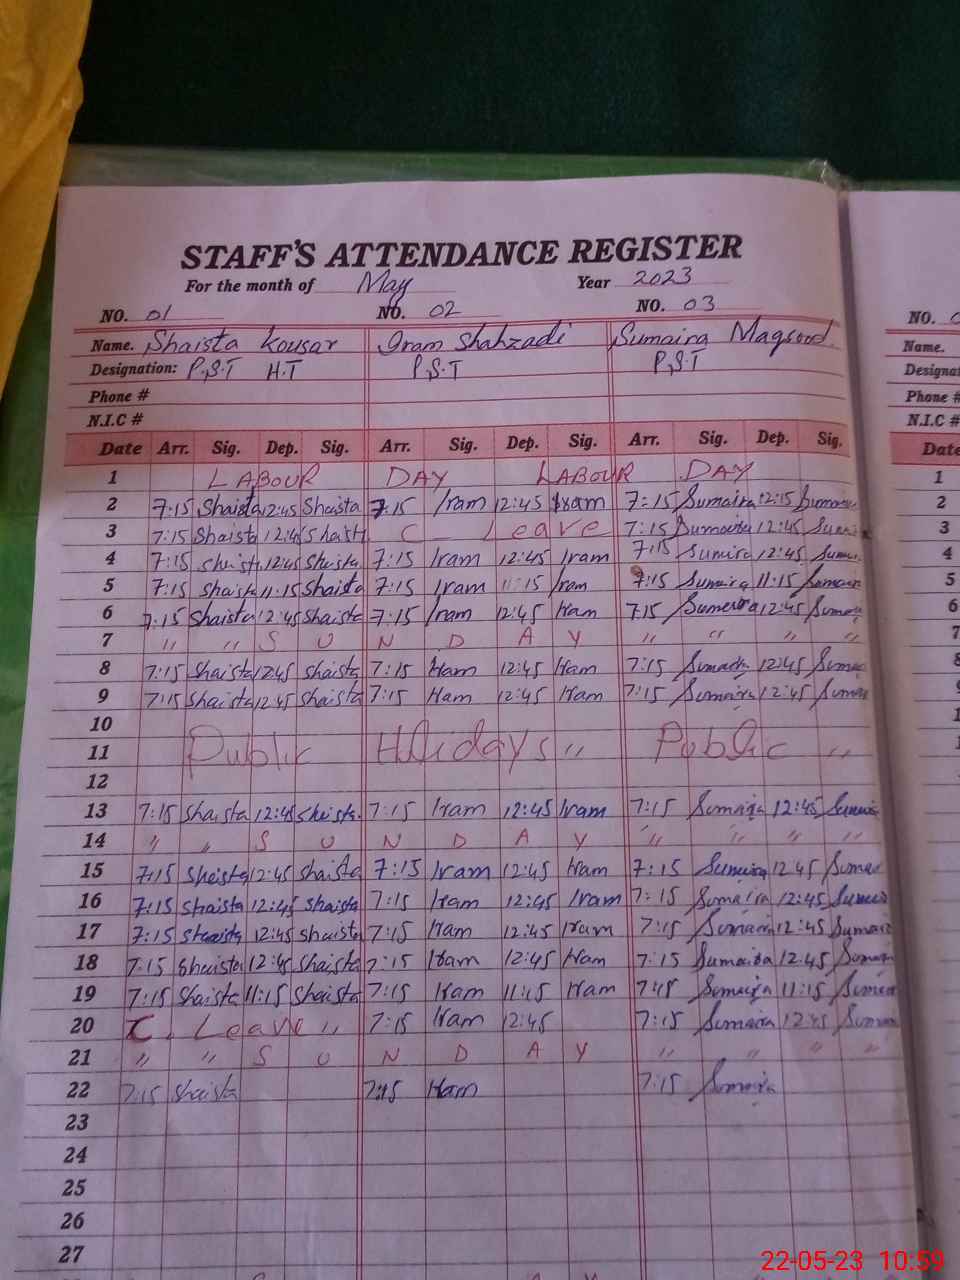 STAFF'S ATTENDANCE REGISTER
For the month of May Year 2023
NO. 01 NO. 02 NO. 03
Name. Shaista Kousar Iram Shahzadi Sumaira Maqsood Name.
Designation: P.S.T H.T P.S.T P.S.T
Phone # Phone #
N.I.C # N.I.C #
Date Arr. Sig. Dep. Sig. Arr. Sig. Dep. Sig. Arr. Sig. Dep. Sig. Date
1 LABOUR DAY LABOUR DAY 1
2 7:15 Shaista 12:45 Shaista 7:15 Iram 12:45 Iram 7:15 Sumaira 12:15 Sumaira 2
3 7:15 Shaista 12:45 Shaista C Leave 7:15 Sumaira 12:45 3
4 7:15 Shaista 12:45 Shaista 7:15 Iram 12:45 Iram 7:15 Sumira 12:45 4
5 7:15 Shaista 11:15 Shaista 7:15 Iram 11:15 Iram 7:15 Sumaira 11:15 Sumaira 5
6 7:15 Shaista 12:45 Shaista 7:15 Iram 12:45 Iram 7:15 Sumaira 12:45 6
7 " " S U N D A Y " " " " 7
8 7:15 Shaista 12:45 Shaista 7:15 Iram 12:45 Iram 7:15 Sumaira 12:45 8
9 7:15 Shaista 12:45 Shaista 7:15 Iram 12:45 Iram 7:15 Sumaira 12:45
10
11 Public Holidays " Public "
12
13 7:15 Shaista 12:45 Shaista 7:15 Iram 12:45 Iram 7:15 Sumaira 12:45
14 " " S U N D A Y " " " "
15 7:15 Shaista 12:45 Shaista 7:15 Iram 12:45 Iram 7:15 Sumaira 12:45
16 7:15 Shaista 12:45 Shaista 7:15 Iram 12:45 Iram 7:15 Sumaira 12:45
17 7:15 Shaista 12:45 Shaista 7:15 Iram 12:45 Iram 7:15 Sumaira 12:45
18 7:15 Shaista 12:45 Shaista 7:15 Iram 12:45 Iram 7:15 Sumaira 12:45
19 7:15 Shaista 11:15 Shaista 7:15 Iram 11:15 Iram 7:15 Sumaira 11:15
20 C. Leave " 7:15 Iram 12:45 7:15 Sumaira 12:45
21 " " S U N D A Y " " " "
22 7:15 Shaista 7:15 Iram 7:15 Sumaira
23
24
25
26
27
22-05-23 10:59